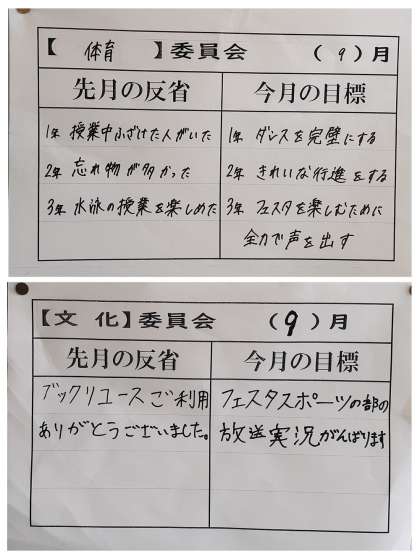 【 体育 】委員会 （ 9 ）月
先月の反省
今月の目標
1年 授業中ふざけた人がいた
2年 忘れ物が多かった
3年 水泳の授業を楽しめた
1年 ダンスを完璧にする
2年 きれいな行進をする
3年 フェスタを楽しむために
全力で声を出す
【文 化】委員会 （ 9 ）月
先月の反省
今月の目標
ブックリユースご利用
ありがとうございました。
フェスタスポーツの部の
放送実況がんばります